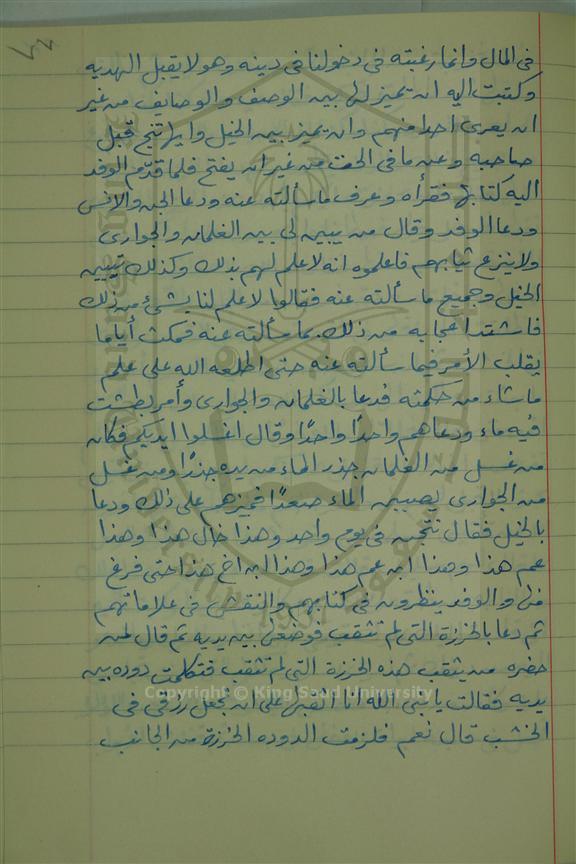 في المال وانما رغبته في دخولنا في دينه وهو لا يقبل الهديه
وكتبت اليه ان تميز لي بين الوصف والوصايف من غير
ان يعرى احدا منهم وان تميز بين الخيل وايها نتج قبل
صاحبه وعن ما في الحق من غير ان يفتح فلما قدّم الوفد
اليه كتابها فقرأه وعرف ما سألته عنه ودعا الجن والانس
ودعا الوفد وقال من يبين لي بين الغلمان والجواري
ولا ينزع ثيابهم فاعلموه انه لا علم لهم بذلك وكذلك تبيين
الخيل وجميع ما سألته عنه فقالوا لا علم لنا بشيء من ذلك
فاشتد اعجابه من ذلك بما سألته عنه فمكث أياما
يقلب الأمر فيما سألته عنه حتى اطلعه الله على علم
ما شاء من حكمته فدعا بالغلمان والجواري وأمر بطشت
فيه ماء ودعاهم واحدًا واحدًا وقال اغسلوا ايديكم فكان
من غسل من الغلمان جذر الماء من يده جذرًا ومن غسل
من الجواري يصببن الماء صعدًا فميزهم على ذلك ودعا
بالخيل فقال نتجن في يوم واحد وهذا خال هذا وهذا
عم هذا وهذا ابن عم هذا وهذا ابن اخ هذا حتى فرغ
منها والوفد ينظرون في كتابهم والنقش في علاماتهم
ثم دعا بالخرزة التي لم تثقب فوضعها بين يديه ثم قال لمن
حضره من يثقب هذه الخرزة التي لم تثقب فتكلمت دوده بين
يديه فقالت يا نبي الله انا اثقبها على ان تجعل رزقي في
الخشب قال نعم فلزمت الدوده الخرزة من الجانب
Copyright © King Saud University